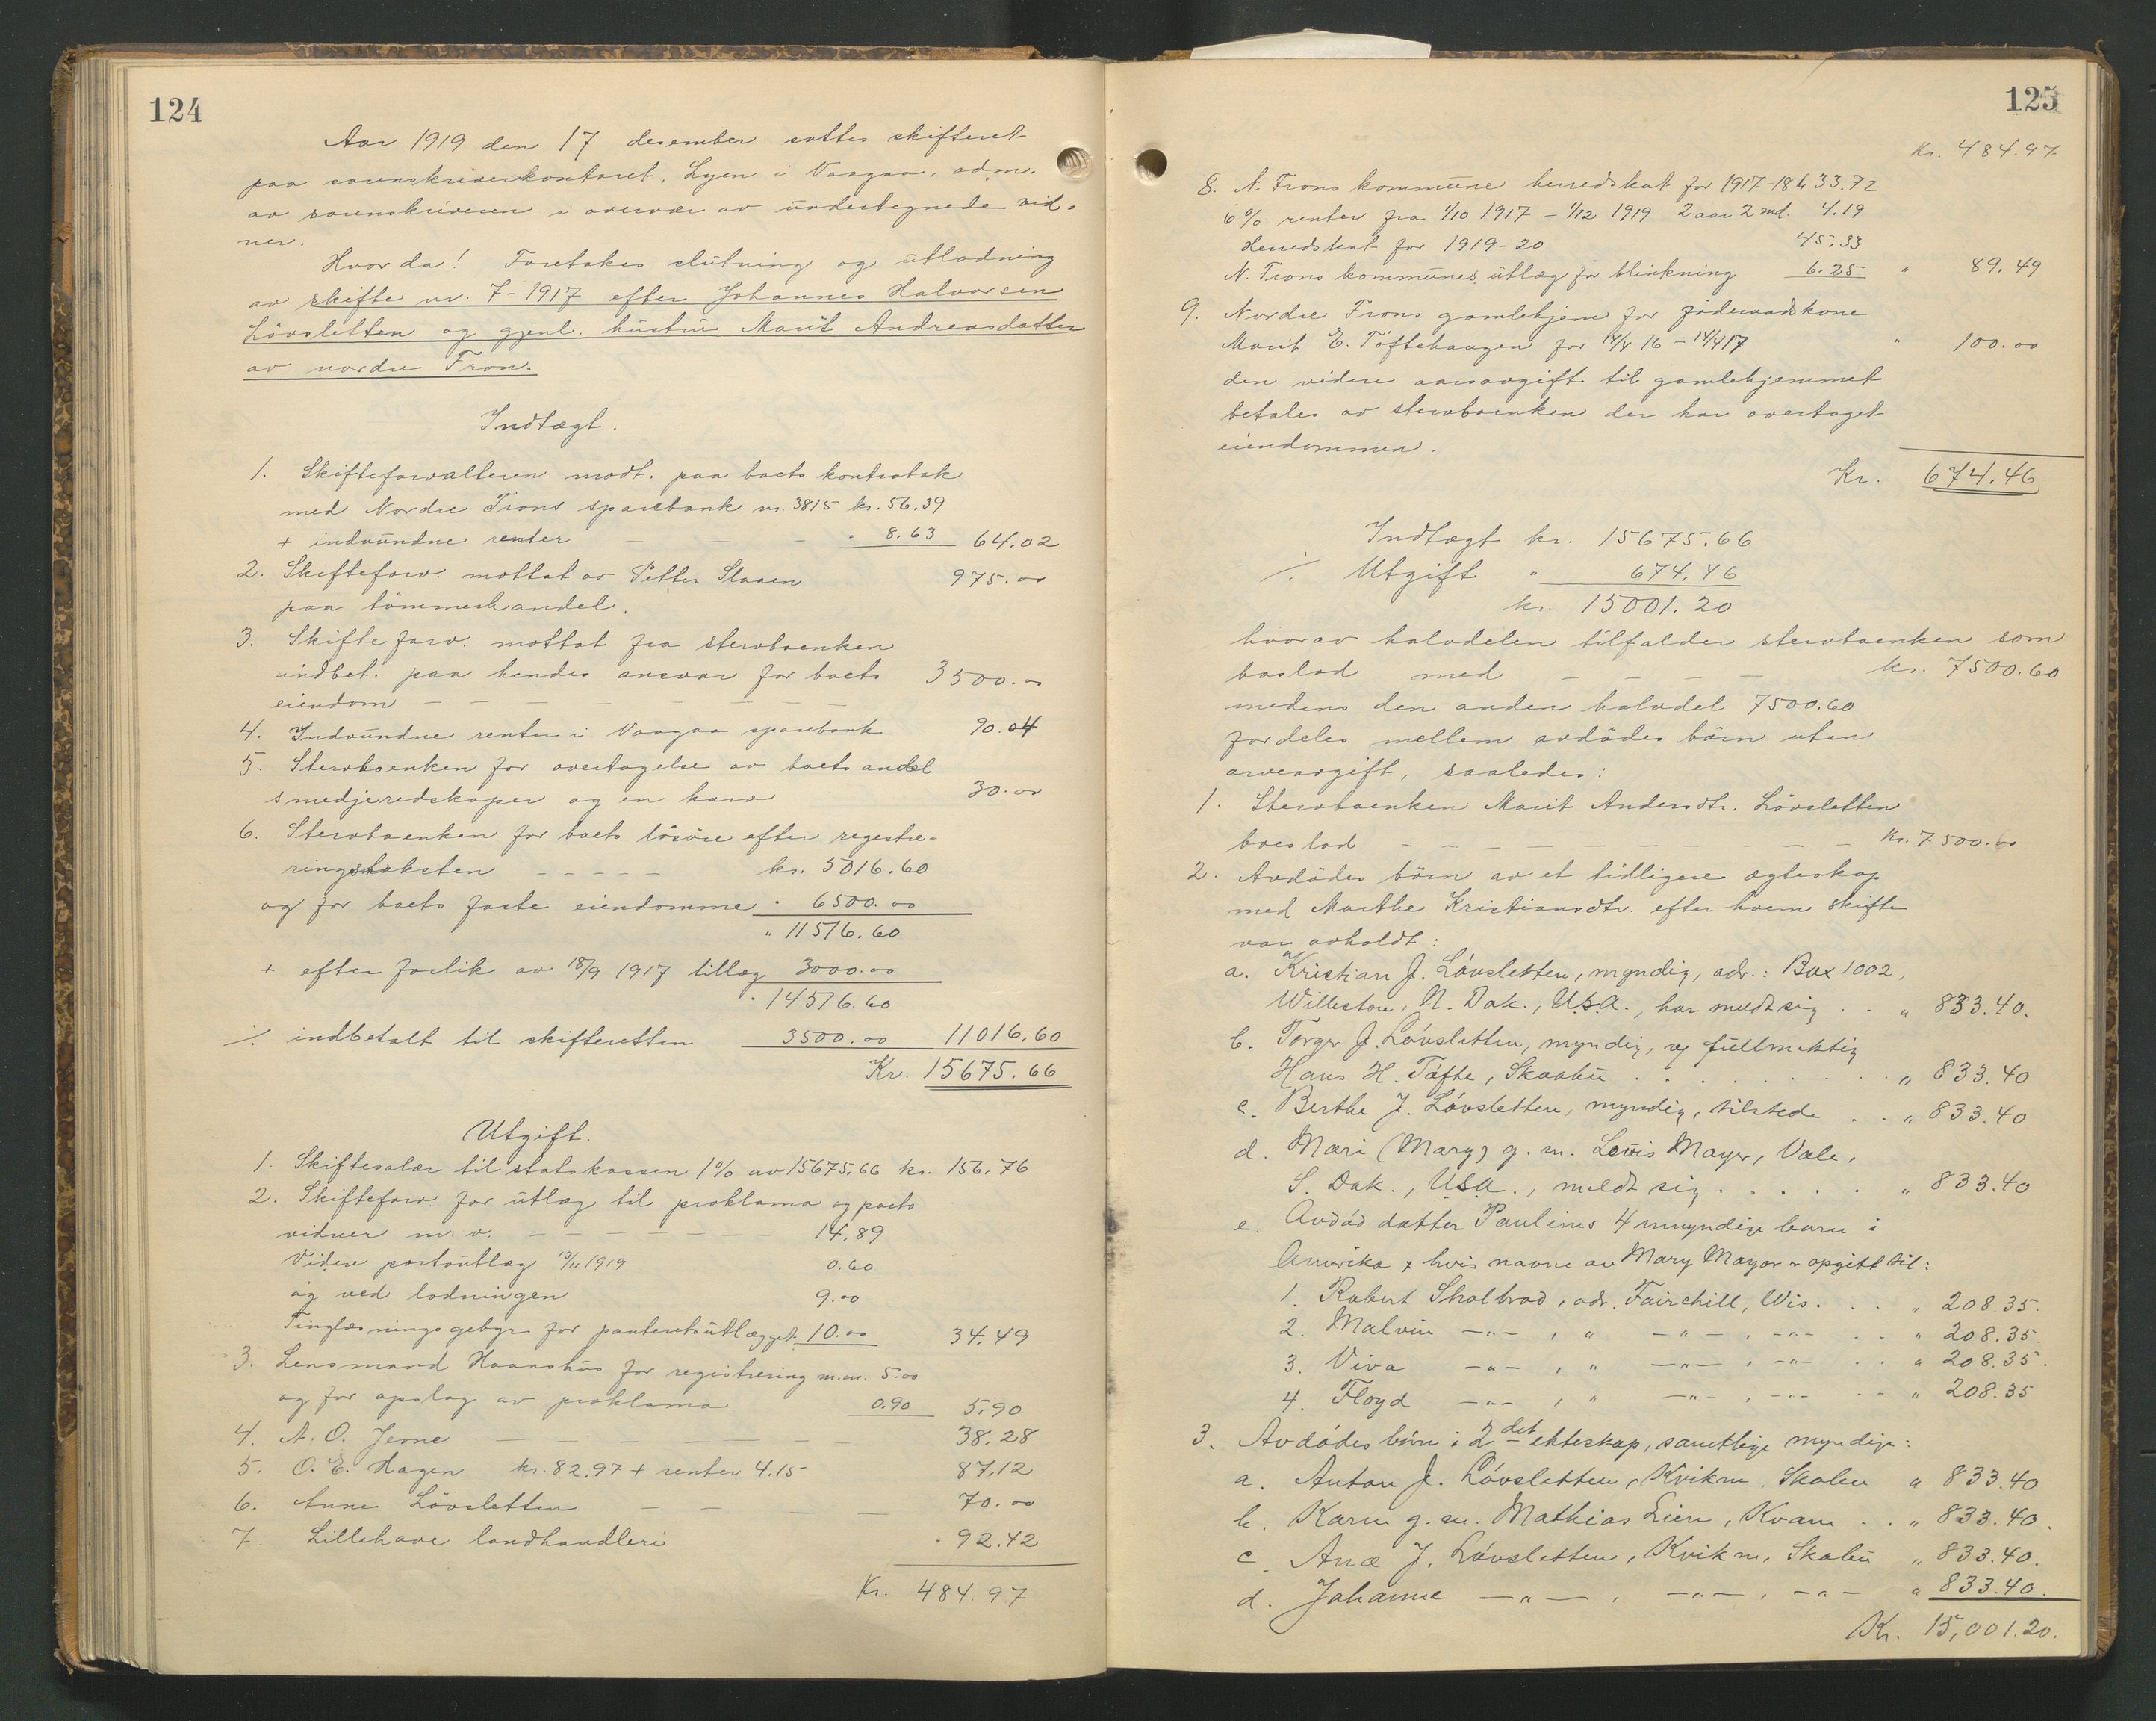 124
Aar 1919 den 17 desember sattes skifteret
paa sorenskriverkontoret, Lyen i Vaagaa, adm.
av sorenskriveren i overvær av undertegnede vid-
ner.
Hvorda! Foretokes slutning og utlodning
av skifte nr. 7-1917 efter Johannes Halvorsen
Lövsletten og gjenl. hustru Marit Andreasdatter
av nordre Fron.
Indtægt.
1. Skifteforvalteren modt. paa boets kontrabok
med Nordre Frons sparebank nr. 3815 kr. 56.39
+ indvundne renter — — — " 8.63 64.02
2. Skifteforv. mottat av Petter Slaaen 975.00
paa tömmerhandel.
3. Skifteforv. mottat fra stervboenken
indbet. paa hendes ansvar for boets 3500.00
eiendom — — — — — —
4. Indvundne renter i Vaagaa sparebank 90.04
5. Stervboenken for overtagelse av boets andel
smedjeredskaper og en harv 30.00
6. Stervboenken for boets lösöre efter regestre-
ringstaksten — — — — — kr. 5016.60
og for boets faste eiendomme " 6500.00
" 11516.60
+ efter forlik av 18/9 1917 tillæg 3000.00
" 14516.60
÷ indbetalt til skifteretten 3500.00 11016.60
Kr. 15675.66
Utgift.
1. Skiftesalær til statskassen 1% av 15675.66 kr. 156.76
2. Skifteforv. for utlæg til proklama og porto
vidner m. v. — — — — — — — 14.89
Videre portoutlæg 13/11 1919 0.60
og ved lodningen 9.00
Tinglæsningsgebyr for panteutlægget 10.00 34.49
3. Lensmand Haanshus for registrering m.m. 5.00
og for opslag av proklama 0.90 5.90
4. A. O. Jerne — — — — 38.28
5. O. E. Hagen kr. 82.97 + renter 4.15 87.12
6. Anne Lövsletten — — — 70.00
7. Lillehave landhandleri " 92.42
Kr. 484.97
125
Kr. 484.97
8. N. Frons kommune herredskat for 1917-18 k 33.72
6% renter fra 1/10 1917 – 1/12 1919 2 aar 2 md. 4.19
Herredskat for 1919-20 45.33
N. Frons kommunes utlæg for blinkning 6.25 " 89.49
9. Nordre Frons gamlehjem for föderaadskone
Marit E. Töftehaugen for 14/4 16 – 14/4 17 " 100.00
den videre aarsavgift til gamlehjemmet
betales av stervboenken der har overtaget
eiendommen.
Kr. 674.46
Indtægt kr. 15675.66
÷ Utgift " 674.46
kr. 15001.20
hvorav halvdelen tilfalder stervboenken som
boslod med — — — — kr. 7500.60
medens den anden halvdel 7500.60
fordeles mellem avdödes börn uten
arveavgift, saaledes:
1. Stervboenken Marit Andersdtr. Lövsletten
boeslod — — — — — — — — — Kr. 7500.60
2. Avdödes börn av et tidligere ægteskap
med Marthe Kristiansdtr. efter hvem skifte
var avholdt:
a. Kristian J. Lövsletten, myndig, adr.: Box 1002,
Williston, N. Dak., U.S.A., har meldt sig . . " 833.40.
b. Torger J. Lövsletten, myndig, ved fuldmektig
Hans H. Tøfte, Skaabu . . . . . . . . " 833.40
c. Berthe J. Lövsletten, myndig, tilstede . . " 833.40
d. Mari (Mary) g. m. Louis Mayer, Vale,
S. Dak., U.S.A., meldt sig . . . . . " 833.40
e. Avdöd datter Paulines 4 umyndige barn i
Amerika, hvis navne av Mary Mayer er opgitt til:
1. Robert Skolbrod, adr. Fairchild, Wis. . . " 208.35.
2. Malvin —"— , " —"— , —"— . . " 208.35.
3. Viva —"— , " —"— , —"— . . " 208.35.
4. Floyd —"— , " —"— , —"— . . " 208.35
3. Avdödes börn i 2det ekteskap, samtlige myndige:
a. Anton J. Lövsletten, Kvikne, Skabu " 833.40
b. Karen g. m. Mathias Lien, Kvam . . " 833.40.
c. Ane J. Lövsletten, Kvikne, Skabu " 833.40.
d. Johanne —"— , —"— , —"— " 833.40.
Kr. 15,001.20.